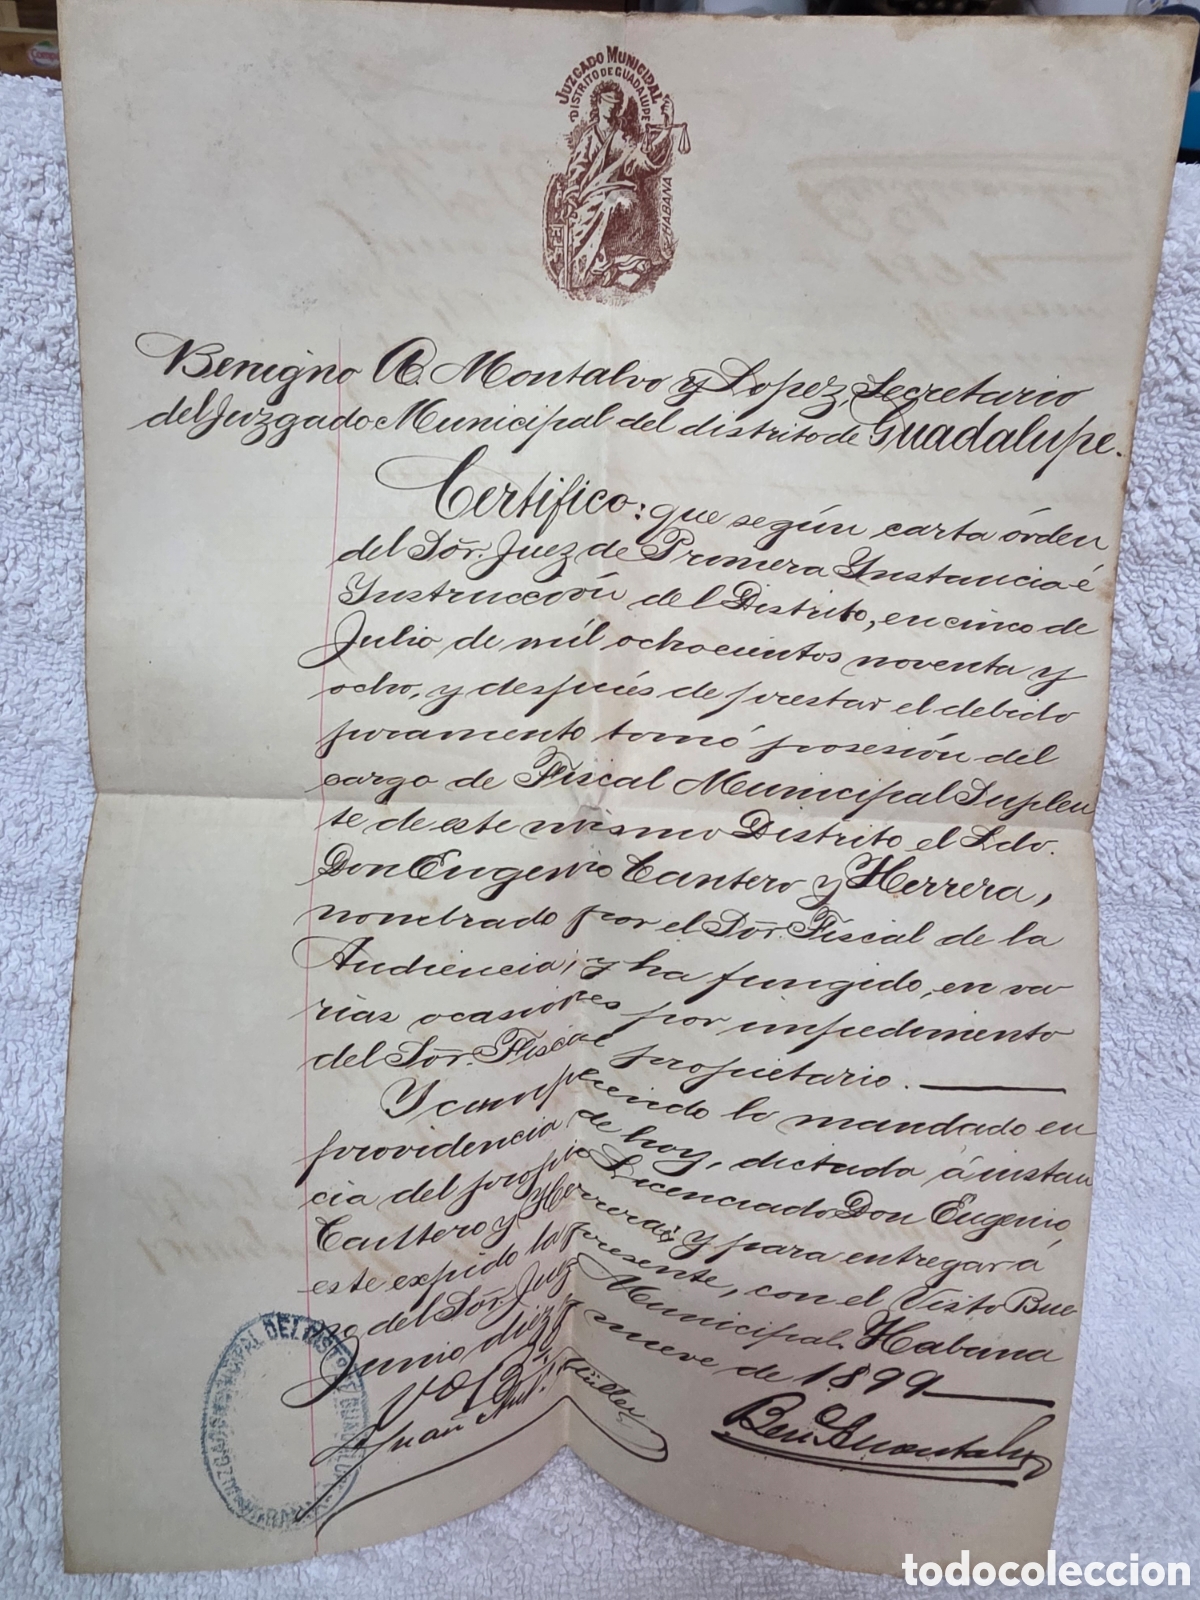 JUZGADO MUNICIPAL
DISTRITO DE GUADALUPE
HABANA
Benigno A. Montalvo y Lopez, Secretario
del Juzgado Municipal del distrito de Guadalupe.
Certifico: que según carta órden
del Sõr. Juez de Primera Instancia é
Instrucción del Distrito, en cinco de
Julio de mil ochocientos noventa y
ocho, y después de prestar el debido
juramento tomó posesión del
cargo de Fiscal Municipal Suplen
te de este mismo Distrito el Ldo.
Don Eugenio Cantero y Herrera,
nombrado por el Sõr. Fiscal de la
Audiencia; y ha fungido, en va
rias ocasiones por impedimento
del Sõr. Fiscal propietario.
Y cumpliendo lo mandado en
providencia de hoy, dictada á instan
cia del propio Licenciado Don Eugenio
Cantero y Herrera; y para entregar á
este expido la presente, con el Visto Bue
no del Sõr. Juez Municipal. Habana
Junio diez y nueve de 1899
Vo Bo
Juan Müller
Ben A Montalvo
JUZGADO MUNICIPAL DEL DISTO DE GUADALUPE
HABANA
todocoleccion